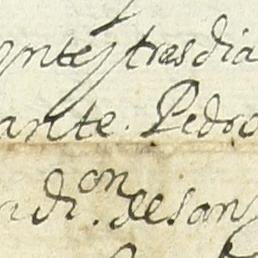 ynte y tres dia
ante. Pedro
ndi.on de san